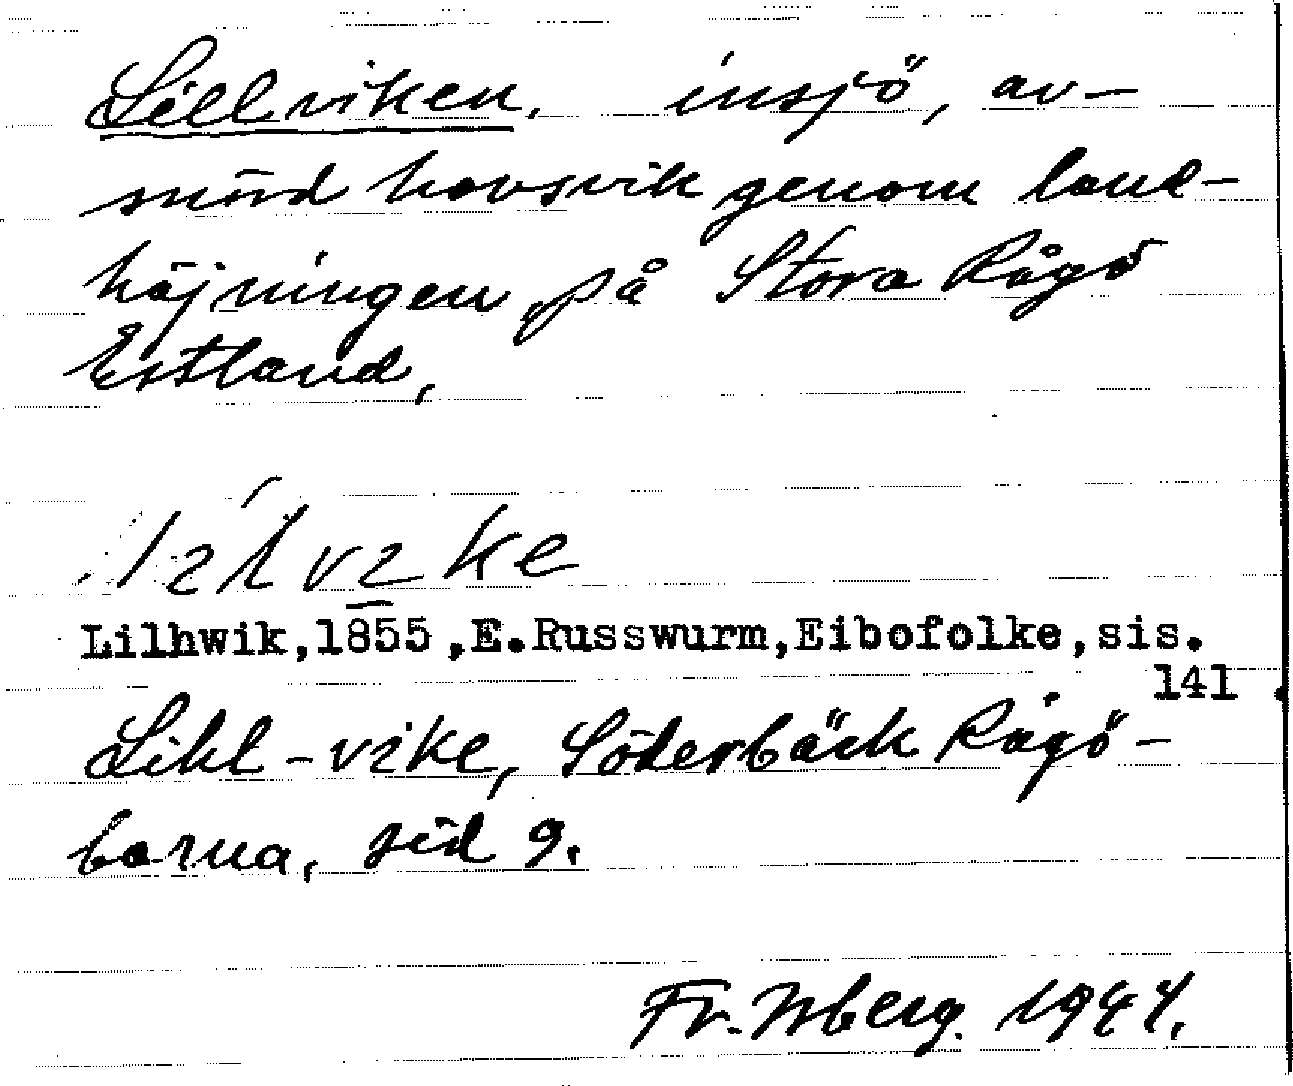 Lillviken, insjö, av-
snörd havsvik genom land-
höjningen på Stora Rågö
Estland,
Lilhwik,1855,E.Russwurm,Eibofolke,sis.
141.
Lihl-vike, Söderbäck Rågö-
borna, sid 9.
Fr. Wberg. 1944.